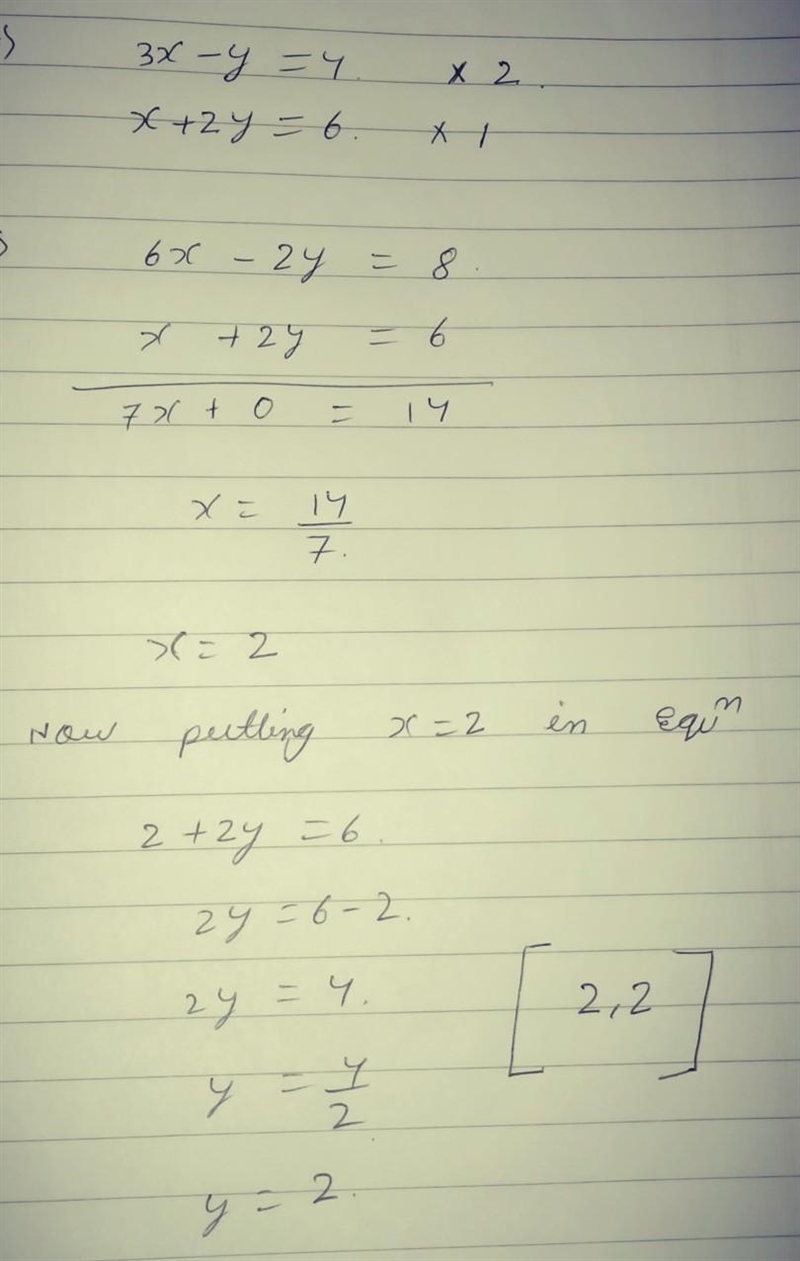 3x - y = 4. × 2.
x + 2y = 6. × 1
6x - 2y = 8.
x + 2y = 6
7x + 0 = 14
x = 14/7.
x = 2
Now putting x = 2 in Equⁿ
2 + 2y = 6.
2y = 6 - 2.
2y = 4.
[2, 2]
y = 4/2
y = 2.